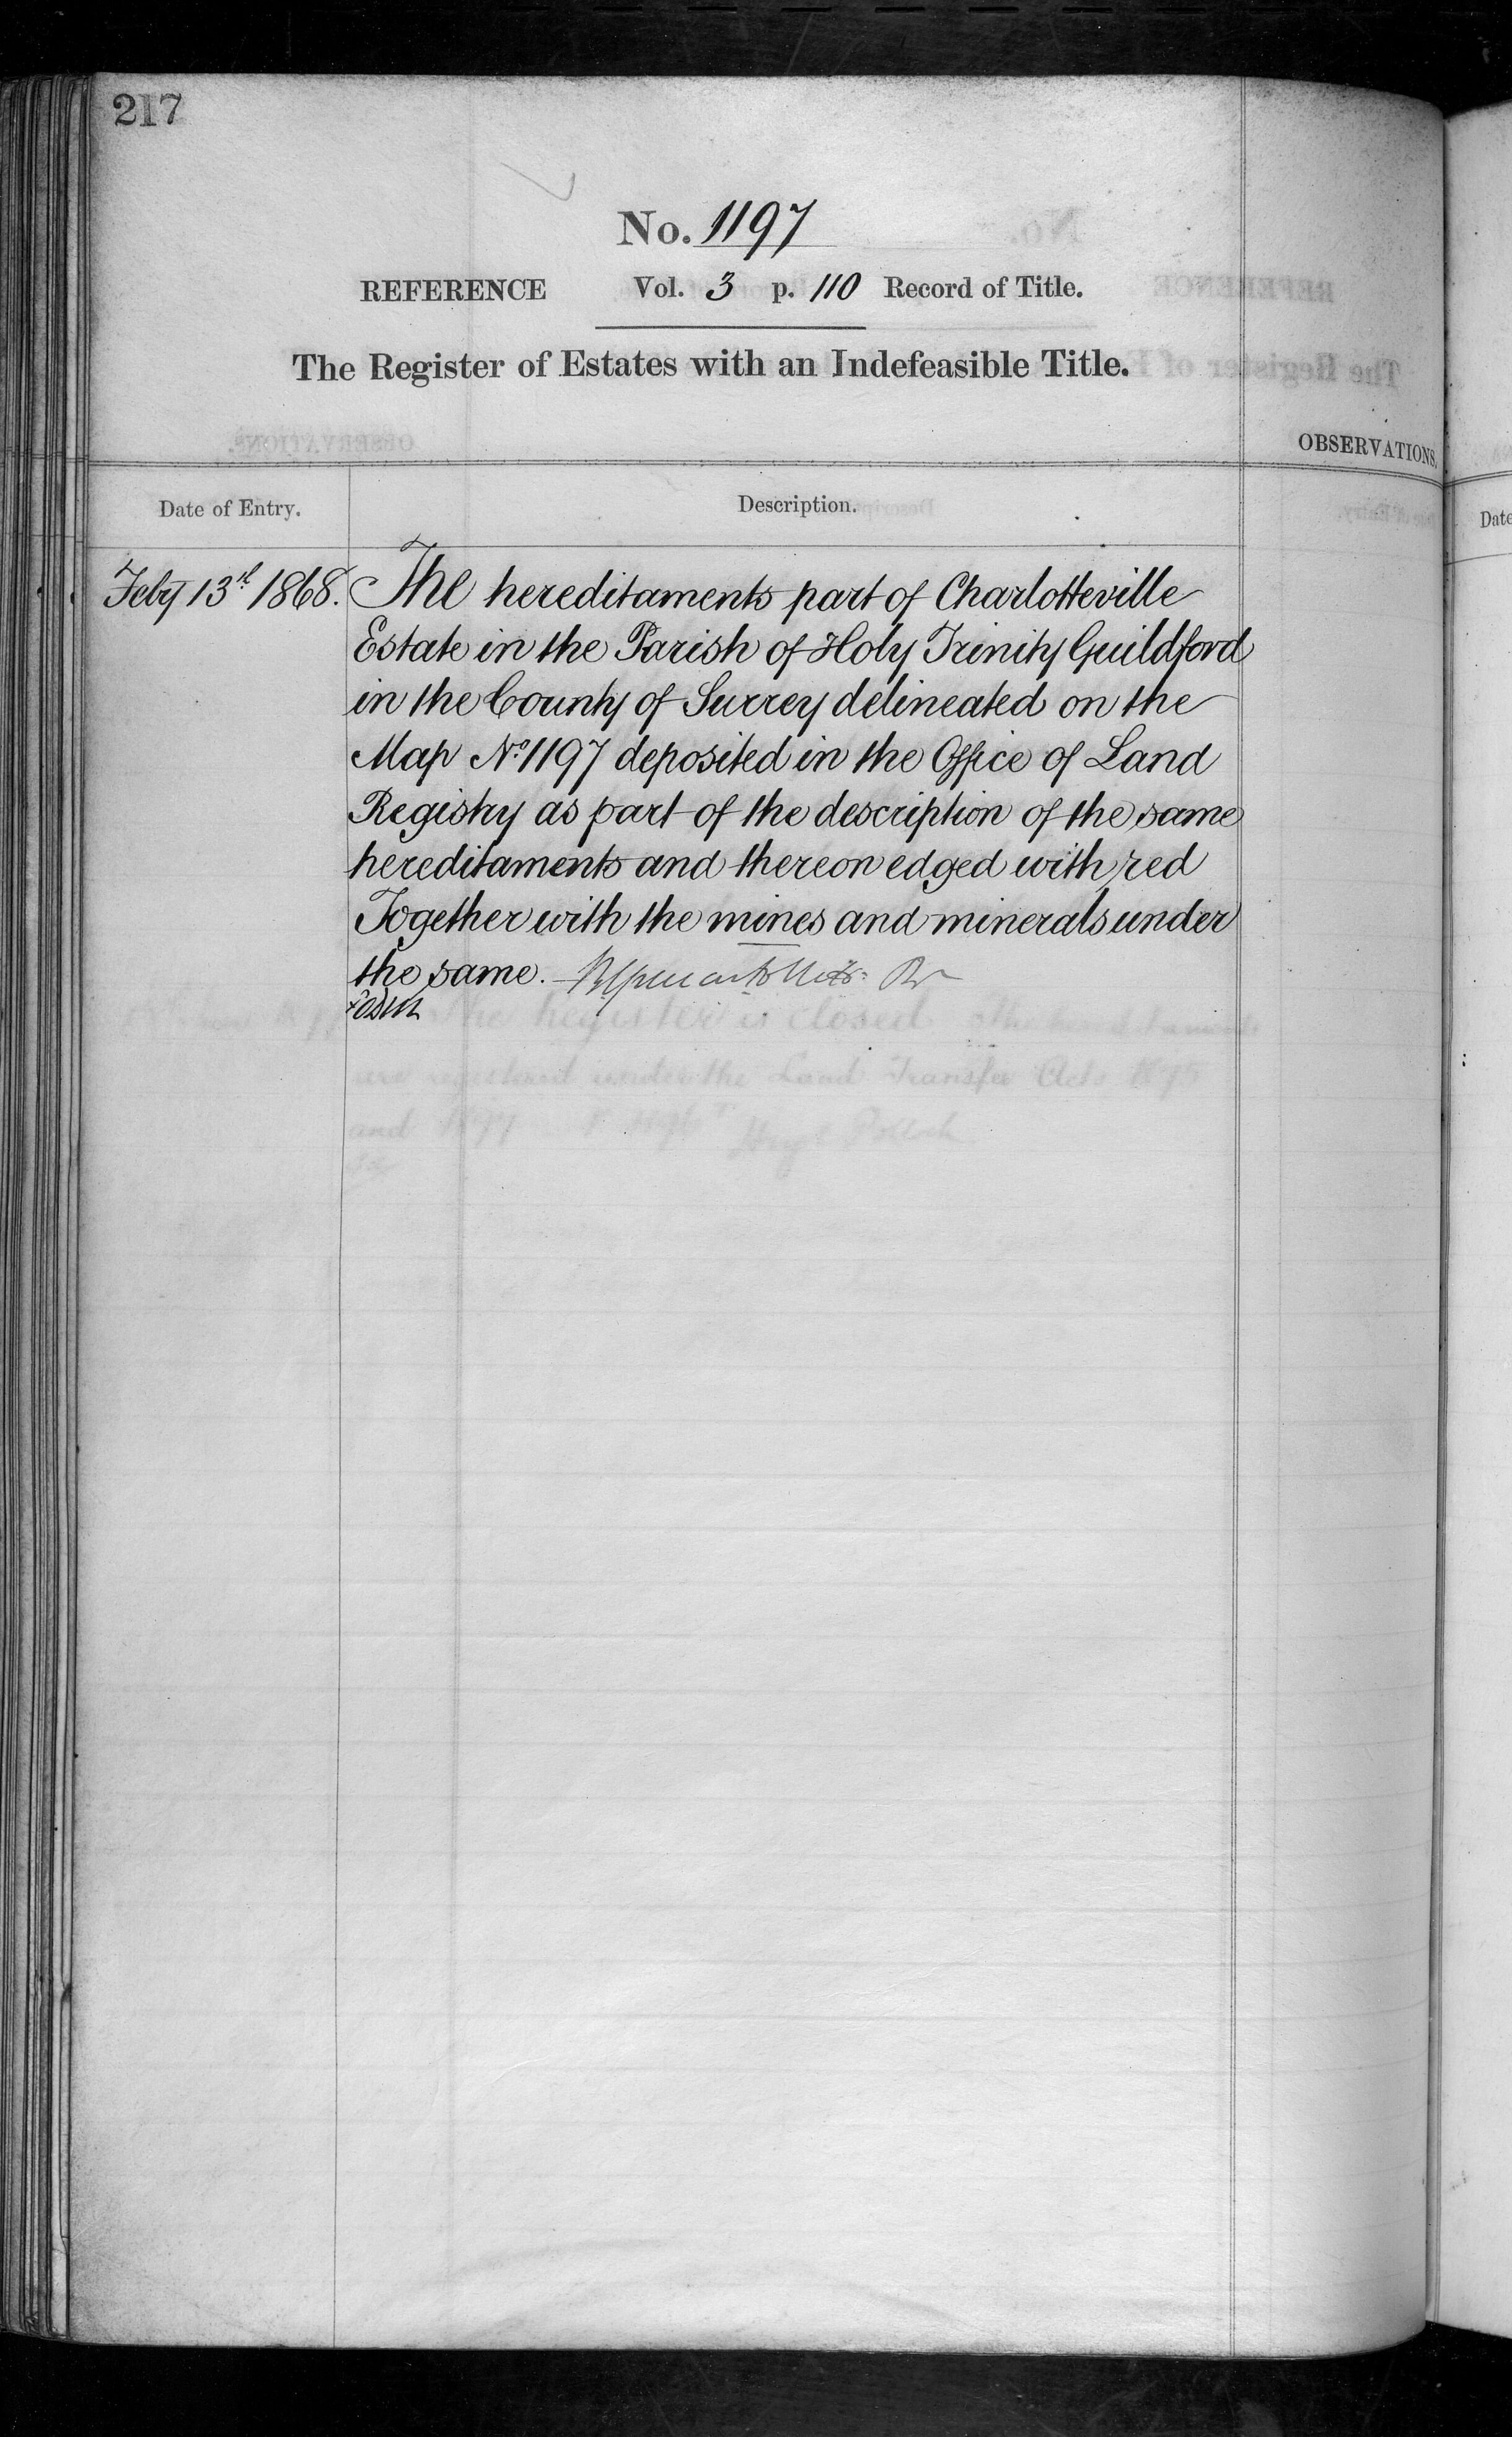 217
No. 1197
REFERENCE Vol. 3 p. 110 Record of Title.
The Register of Estates with an Indefeasible Title.
OBSERVATIONS.
Date of Entry. Description.
Date
Feby 13th 1868. The hereditaments part of Charlotteville
Estate in the Parish of Holy Trinity Guildford
in the County of Surrey delineated on the
Map No 1197 deposited in the Office of Land
Registry as part of the description of the same
hereditaments and thereon edged with red
Together with the mines and minerals under
the same.
the Register is closed the hereditaments
are registered under the Land Transfer Acts 1875
and 1897 Pollock